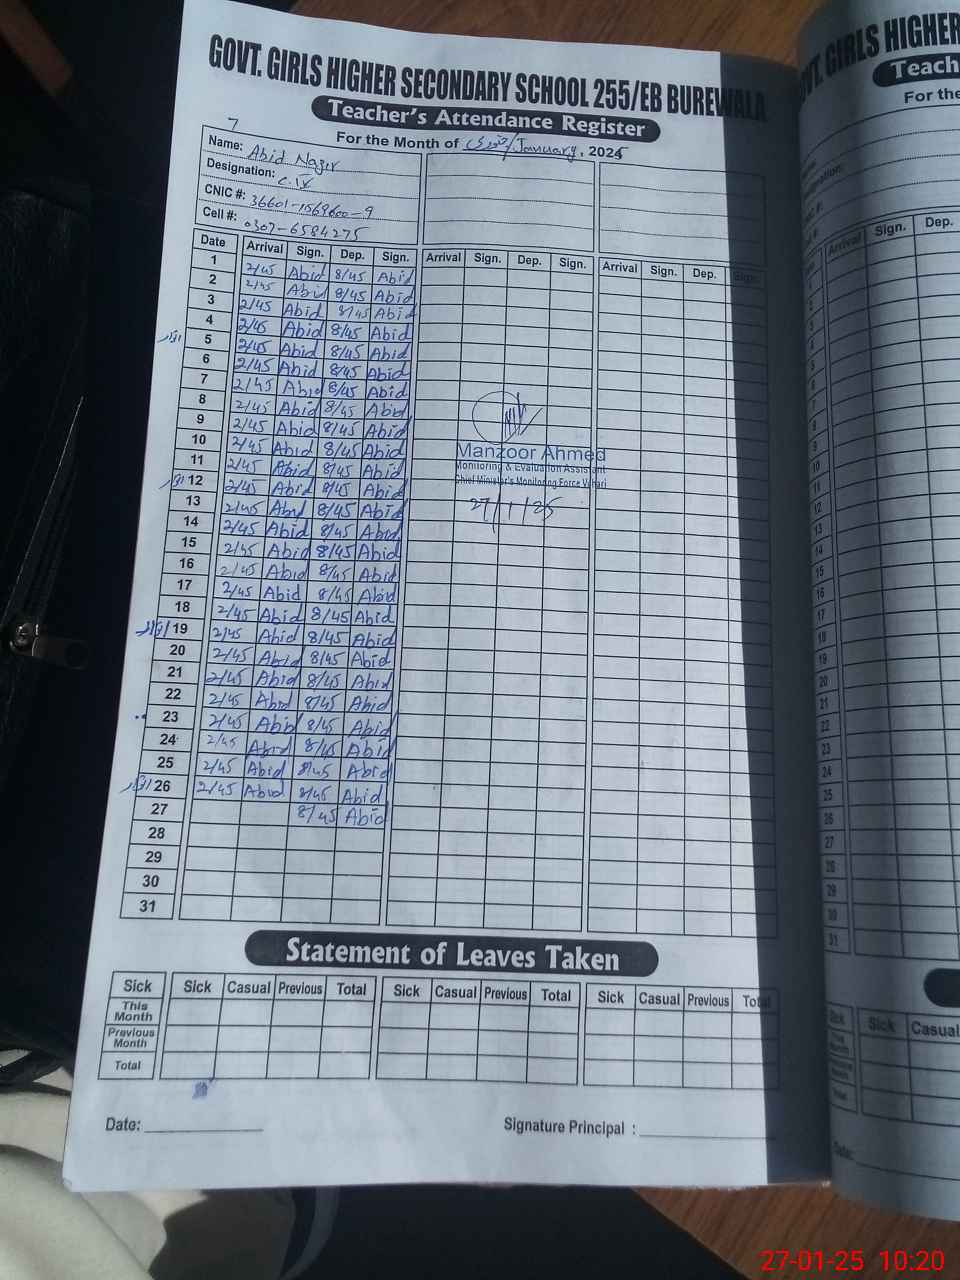 GOVT. GIRLS HIGHER SECONDARY SCHOOL 255/EB BUREWALA
Teacher's Attendance Register
For the Month of جنوری/January, 2025
7
Name: Abid Nazir
Designation: C.IV
CNIC #: 36601-1569600-9
Cell #: 0307-6584275
Date Arrival Sign. Dep. Sign. Arrival Sign. Dep. Sign. Arrival Sign. Dep. Sign.
1 2/45 Abid 8/45 Abid
2 2/45 Abid 8/45 Abid
3 2/45 Abid 8/45 Abid
4 2/45 Abid 8/45 Abid
اتوار 5 2/45 Abid 8/45 Abid
6 2/45 Abid 8/45 Abid
7 2/45 Abid 8/45 Abid
8 2/45 Abid 8/45 Abid
9 2/45 Abid 8/45 Abid
10 2/45 Abid 8/45 Abid
11 2/45 Abid 8/45 Abid
اتوار 12 2/45 Abid 8/45 Abid
13 2/45 Abid 8/45 Abid
14 2/45 Abid 8/45 Abid
15 2/45 Abid 8/45 Abid
16 2/45 Abid 8/45 Abid
17 2/45 Abid 8/45 Abid
18 2/45 Abid 8/45 Abid
اتوار 19 2/45 Abid 8/45 Abid
20 2/45 Abid 8/45 Abid
21 2/45 Abid 8/45 Abid
22 2/45 Abid 8/45 Abid
23 2/45 Abid 8/45 Abid
24 2/45 Abid 8/45 Abid
25 2/45 Abid 8/45 Abid
اتوار 26 2/45 Abid 8/45 Abid
27 8/45 Abid
28
29
30
31
Manzoor Ahmed
Monitoring & Evaluation Assistant
Chief Minister's Monitoring Force Vehari
27/1/25
Statement of Leaves Taken
Sick Sick Casual Previous Total Sick Casual Previous Total Sick Casual Previous Total
This Month
Previous Month
Total
Date:
Signature Principal :
GIRLS HIGHER
Teach
For the
Arrival Sign. Dep.
Sick Sick Casual
27-01-25 10:20